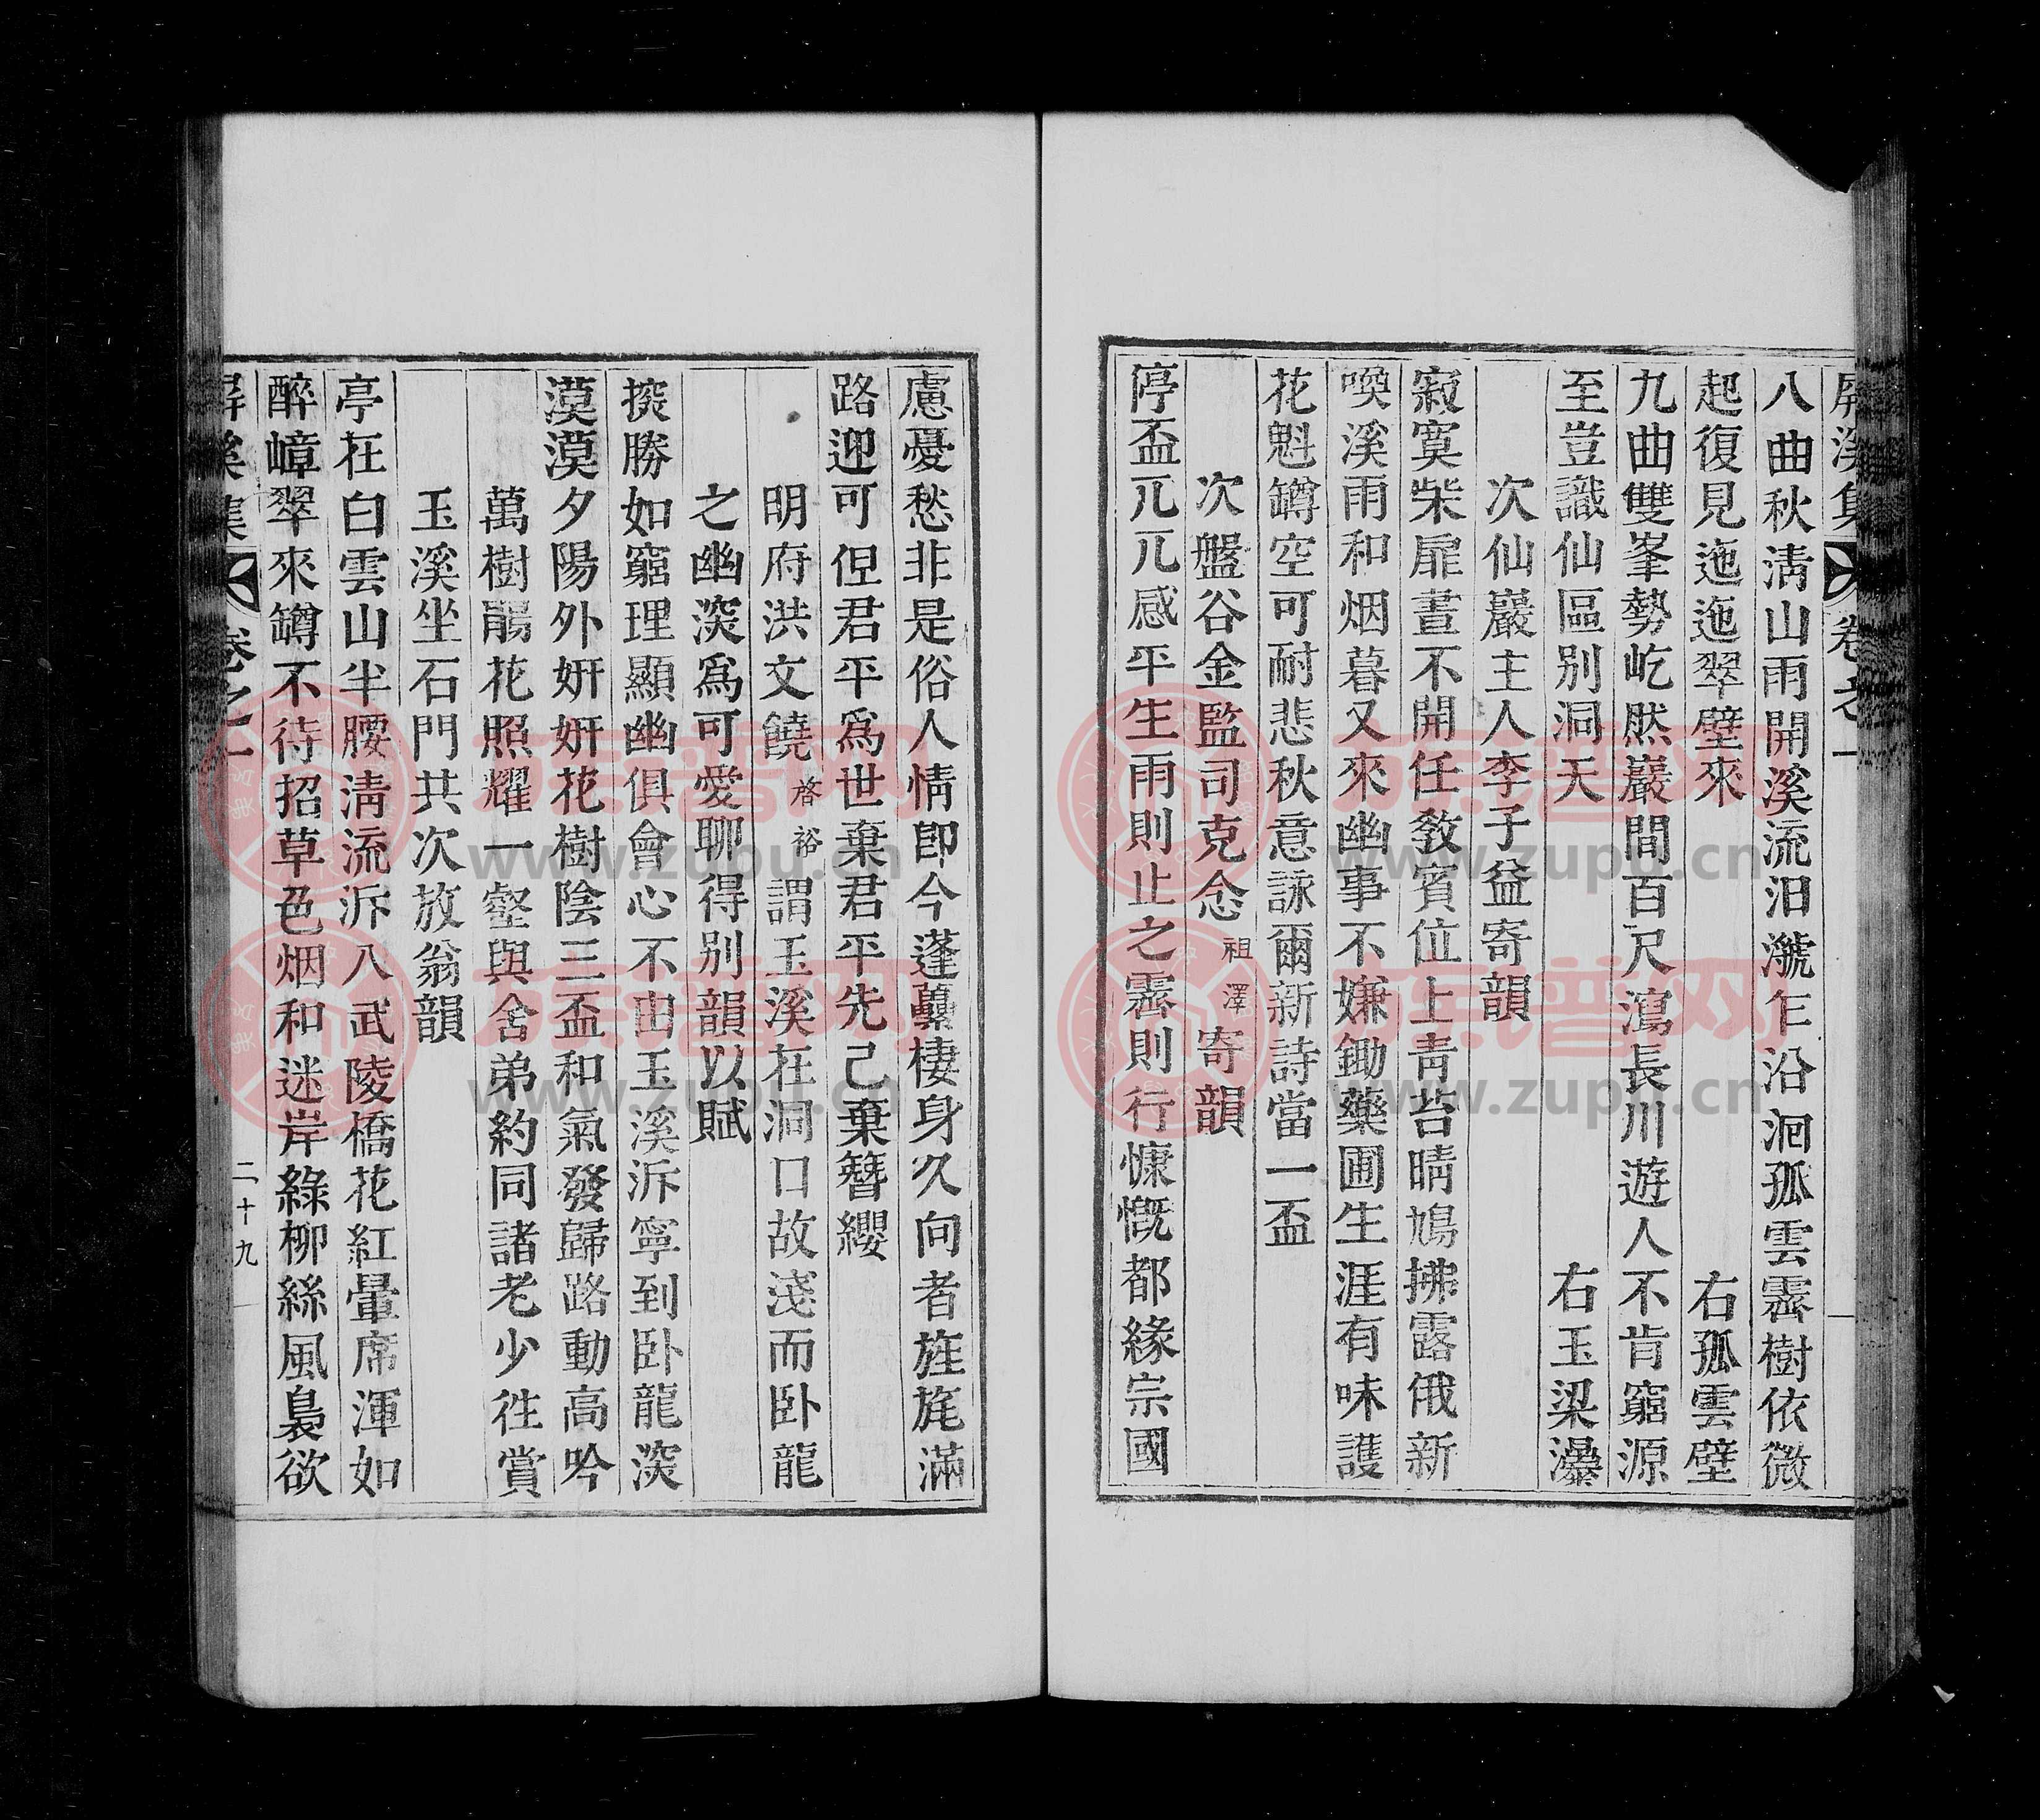 屏溪集 卷之一
八曲秋淸山雨開溪流汨㶁乍沿洄孤雲霽樹依微
起復見迤迤翠壁來 右孤雲壁
九曲雙峯勢屹然巖間百尺瀉長川遊人不肯窮源
至豈識仙區別洞天 右玉梁瀑
次仙巖主人李子益寄韻
寂寞柴扉晝不開任教賓位上靑苔晴鳩拂露俄新
喚溪雨和烟暮又來幽事不嫌鋤藥圃生涯有味護
花魁罇空可耐悲秋意詠爾新詩當一盃
次盤谷金監司克念祖澤寄韻
停盃兀兀感平生雨則止之霽則行慷慨都緣宗國
慮憂愁非是俗人情卽今蓬藟棲身久向者旌旄滿
路迎可但君平爲世棄君平先已棄簪纓
明府洪文饒啓裕謂玉溪在洞口故淺而卧龍
之幽深爲可愛聊得别韻以賦
探勝如窮理顯幽俱會心不由玉溪泝寧到卧龍深
漠漠夕陽外妍妍花樹陰三盃和氣發歸路動高吟
萬樹鵑花照耀一壑與舍弟約同諸老少徃賞
玉溪坐石門共次放翁韻
亭在白雲山半腰淸流泝八武陵橋花紅暈席渾如
醉嶂翠來罇不待招草色烟和迷岸綠柳絲風裊欲
屏溪集 卷之一 二十九
族譜网
www.zupu.cn
族譜网
www.zupu.cn
族譜网
www.zupu.cn
族譜网
www.zupu.cn